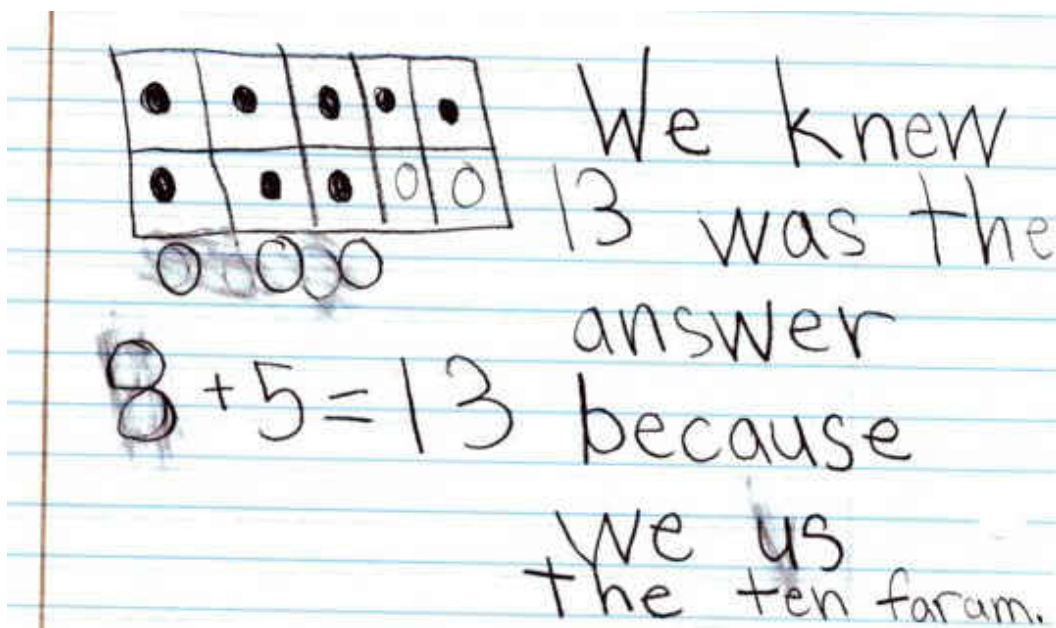 We knew
13 was the
answer
8 + 5 = 13 because
we us
the ten faram.